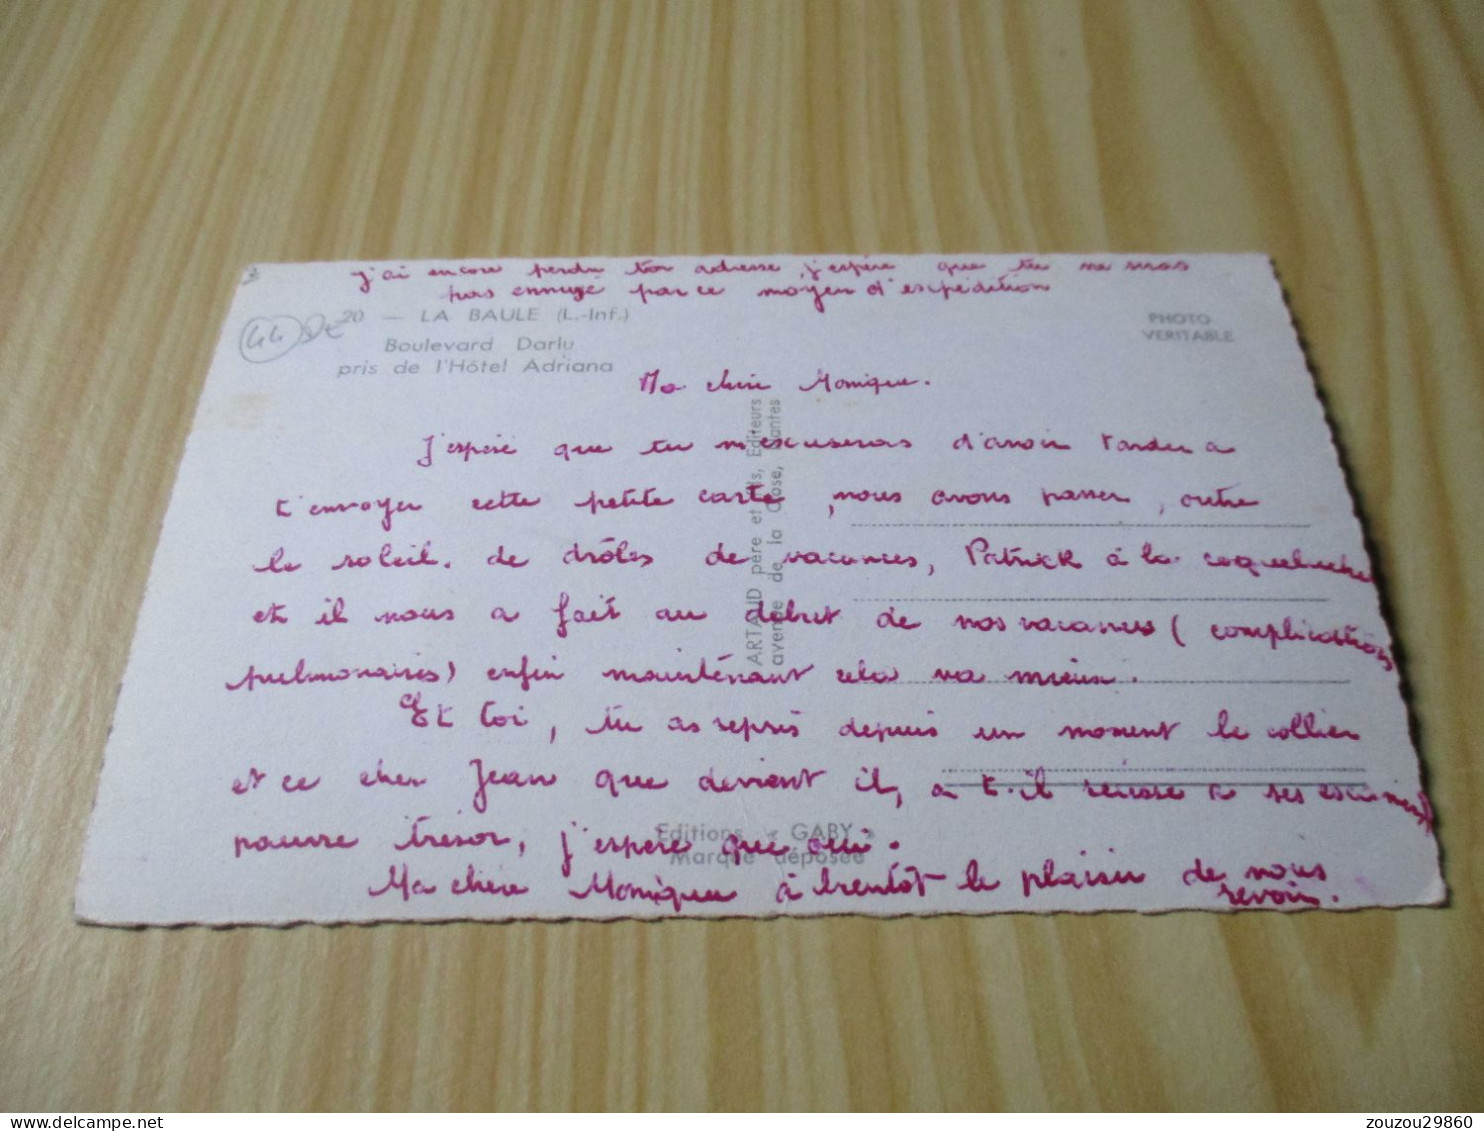 J'ai encore perdu ton adresse, j'espère que tu ne seras
pas ennuyé par ce moyen d'expédition
44
20 — LA BAULE (L.-Inf.)
Boulevard Darlu
pris de l'Hôtel Adriana
PHOTO
VERITABLE
Ma chère Monique.
J'espère que tu m'excuseras d'avoir tarder a
t'envoyer cette petite carte, nous avons passer, outre
le soleil. de drôles de vacances, Patrick à la coqueluche
et il nous a fait au début de nos vacances (complications
pulmonaires) enfin maintenant cela va mieux.
Et toi, tu as repris depuis un moment le collier
et ce cher Jean que devient il, a t-il réussi a ses examens
pauvre trésor, j'espère que oui.
Ma chère Monique à bientôt le plaisir de nous
revoir.
ARTAUD père et fils, Editeurs
avenue de la Close, Nantes
Editions « GABY »
Marque déposée
zouzou29860